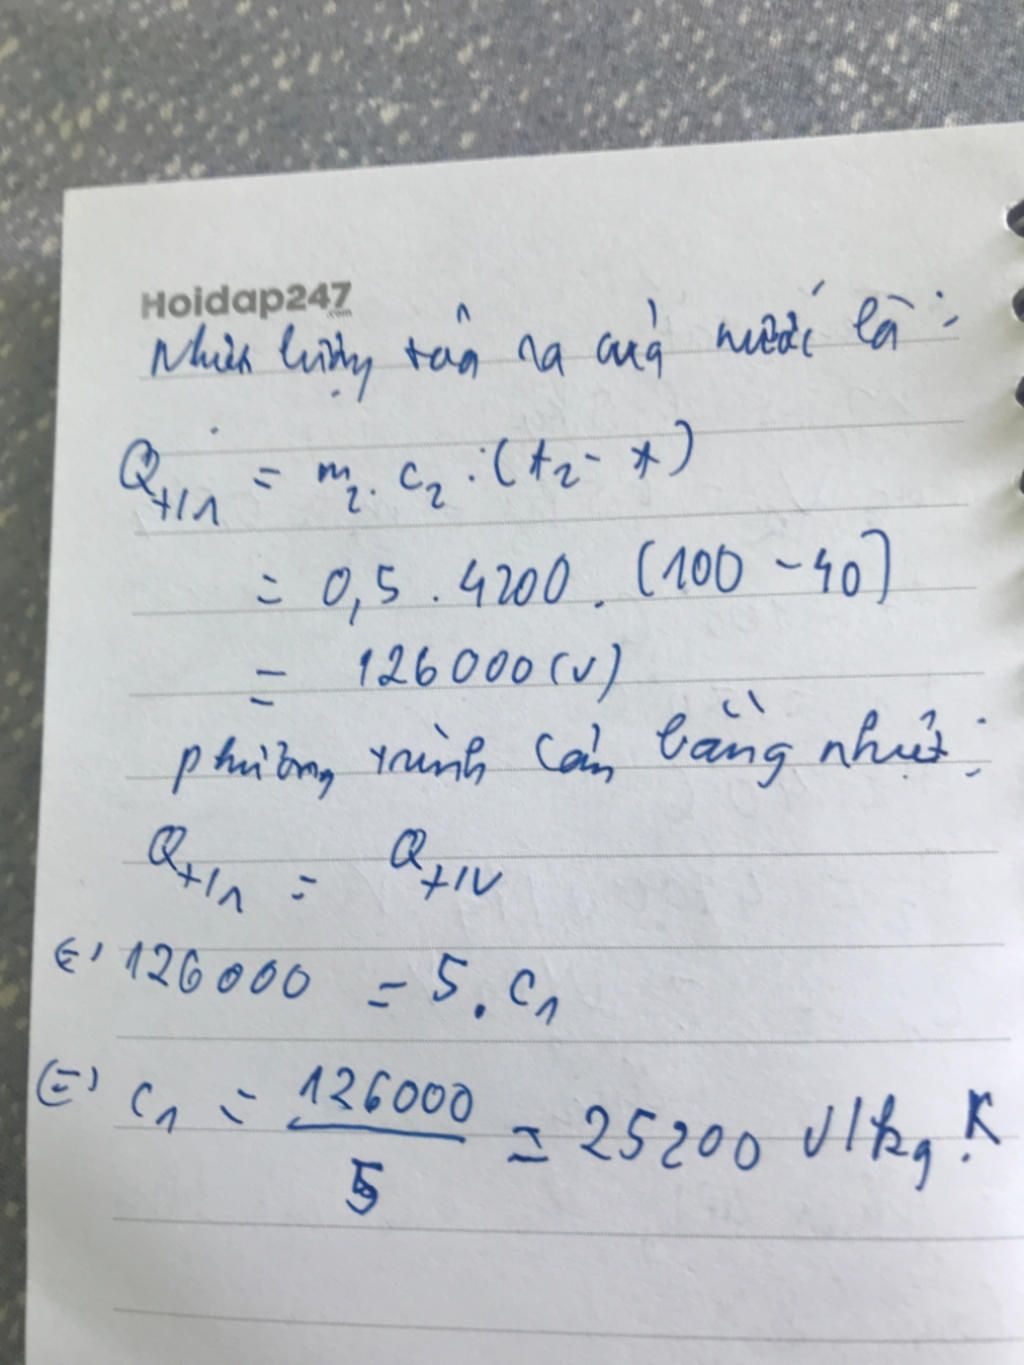 Hoidap247
.com
Nhiệt lượng toả ra của nước là :
Q_t/1 = m_2 . c_2 . (t_2 - t)
= 0,5 . 4200 . (100 - 40)
= 126000 (J)
phương trình cân bằng nhiệt :
Q_t/1 = Q_t/v
(=) 126000 = 5 . c_1
(=) c_1 = 126000/5 = 25200 J/kg.K